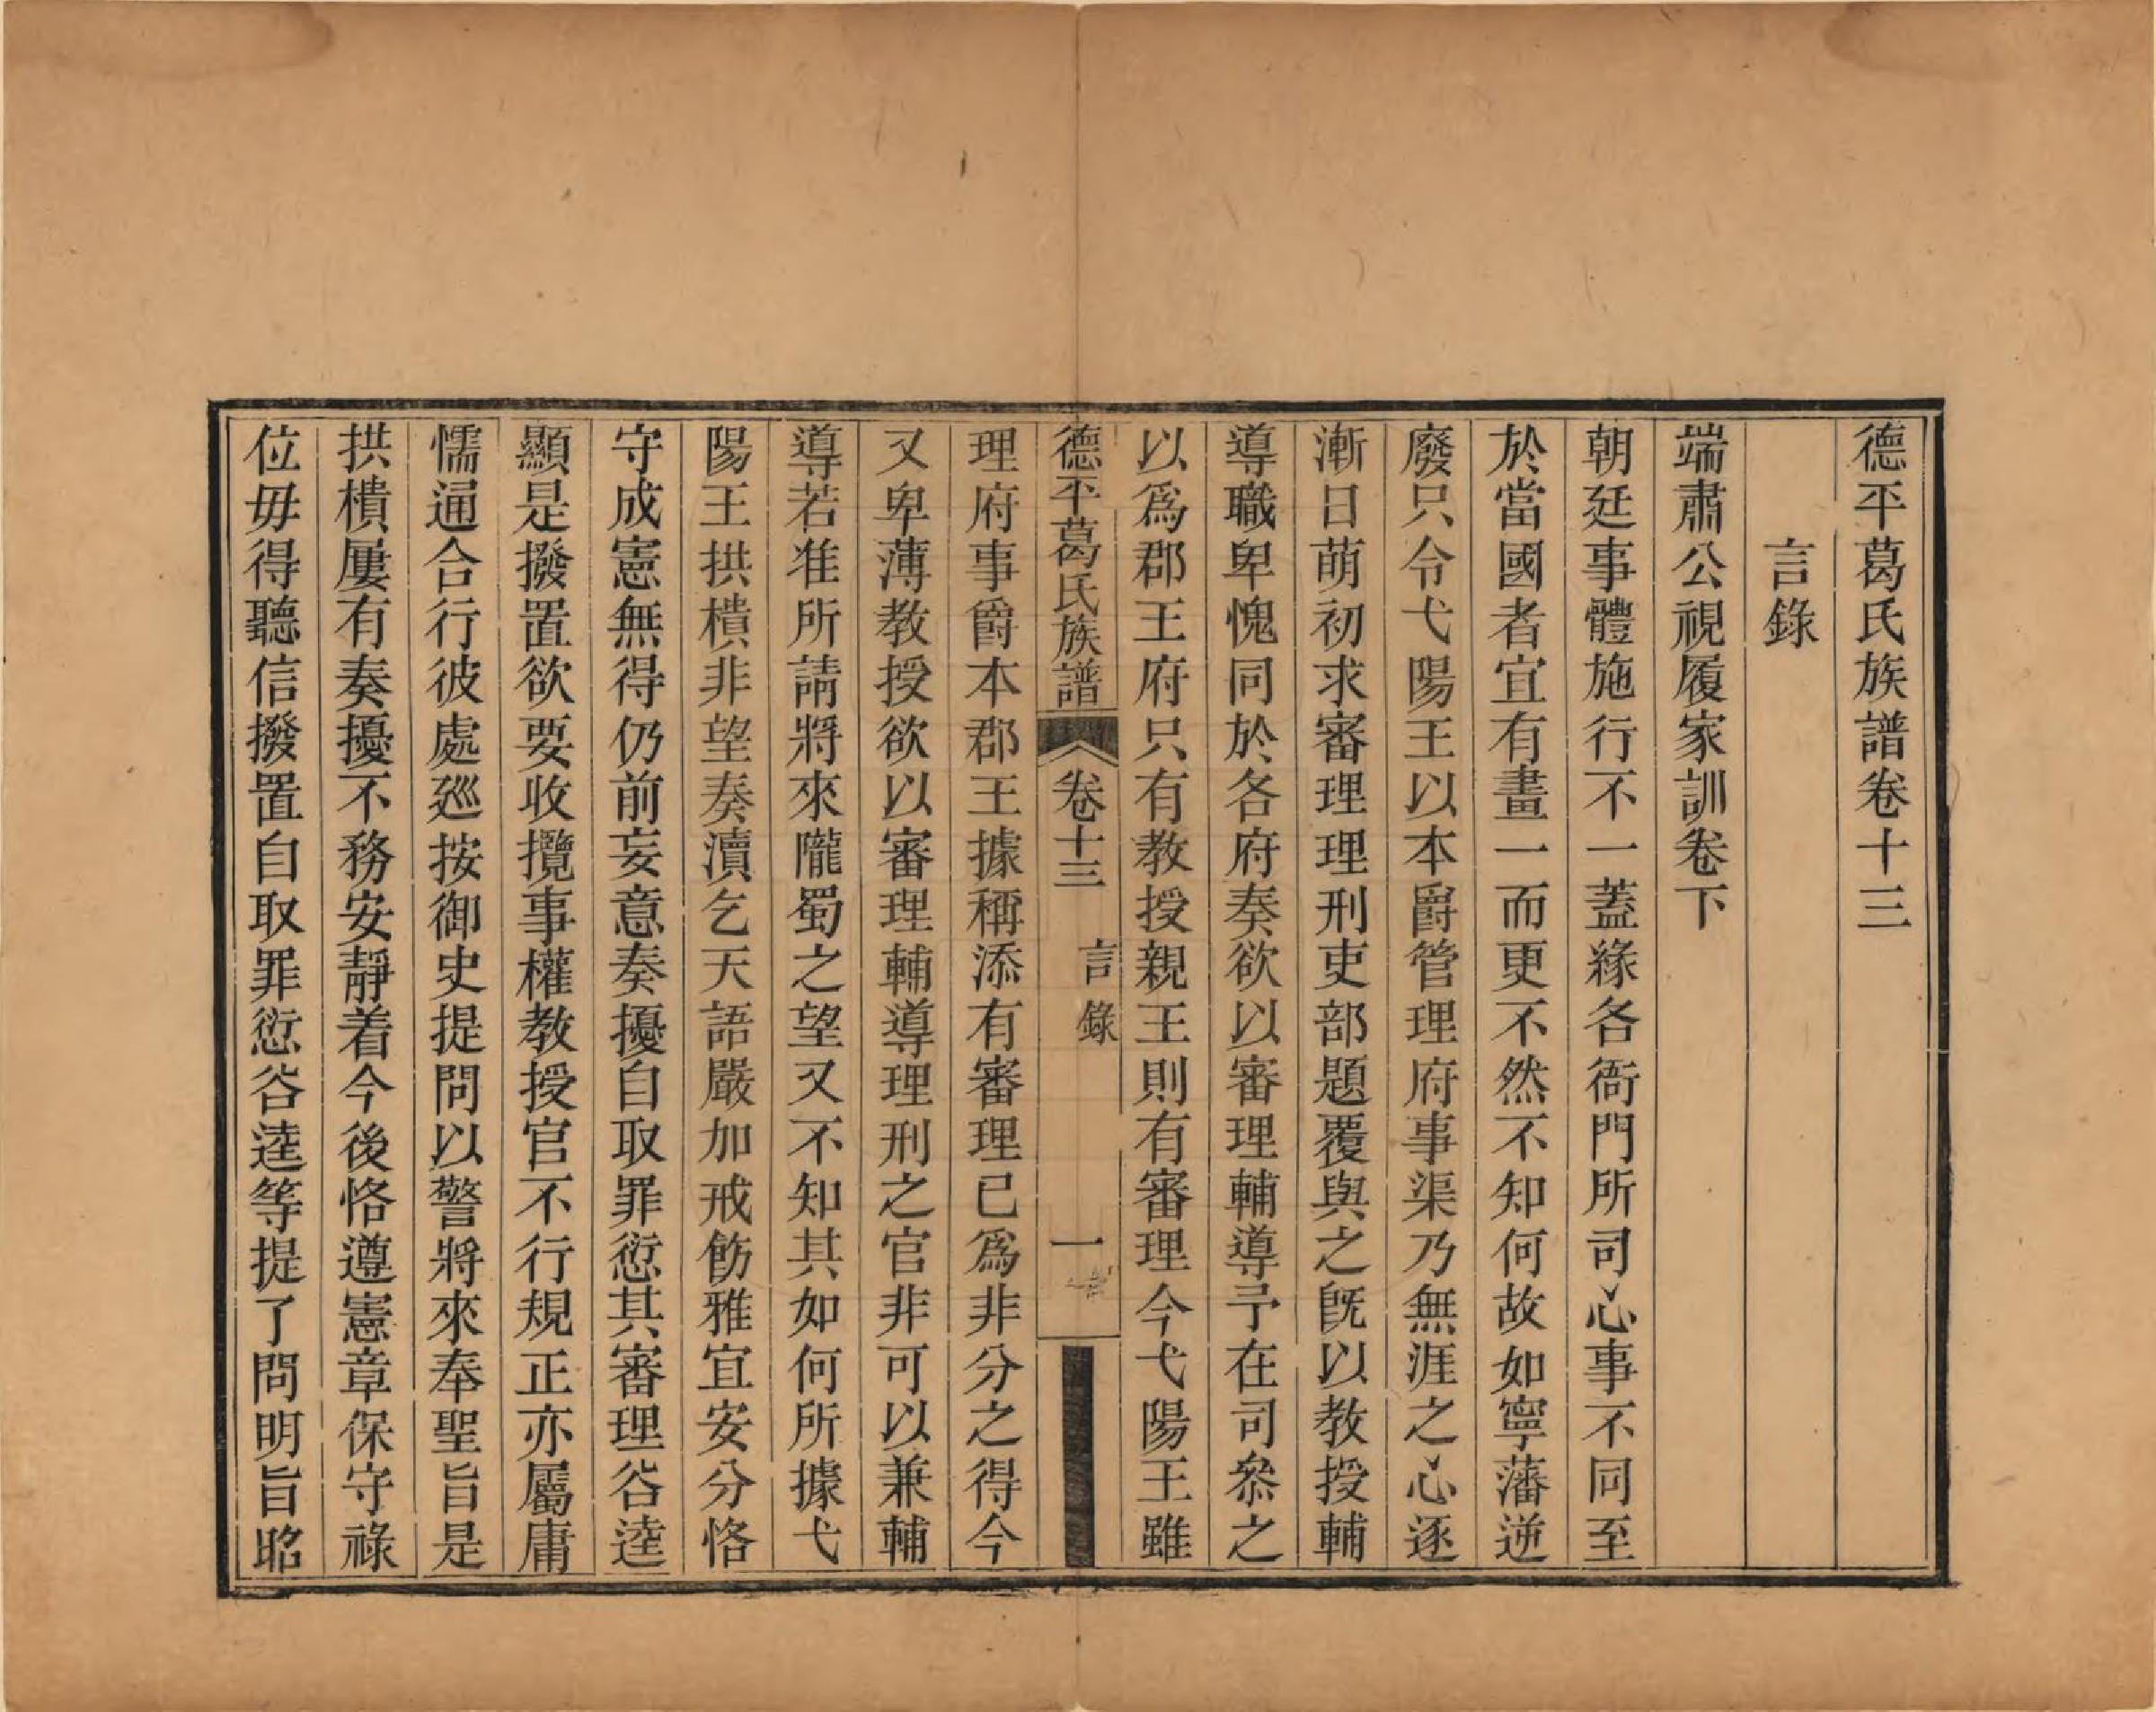 德平葛氏族譜卷十三
言錄
端肅公視履家訓卷下
朝廷事體施行不一蓋緣各衙門所司心事不同至
於當國者宜有畫一而更不然不知何故如寧藩逆
廢只令弋陽王以本爵管理府事渠乃無涯之心逐
漸日萌初求審理理刑吏部題覆與之旣以教授輔
導職卑愧同於各府奏欲以審理輔導予在司叅之
以爲郡王府只有教授親王則有審理今弋陽王雖
德平葛氏族譜 卷十三 言錄 一
理府事爵本郡王據稱添有審理已爲非分之得今
又卑薄教授欲以審理輔導理刑之官非可以兼輔
導若准所請將來隴蜀之望又不知其如何所據弋
陽王拱樻非望奏瀆乞天語嚴加戒飭雅宜安分恪
守成憲無得仍前妄意奏擾自取罪愆其審理谷逵
顯是撥置欲要收攬事權教授官不行規正亦屬庸
懦通合行彼處廵按御史提問以警將來奉聖旨是
拱樻屢有奏擾不務安靜着今後恪遵憲章保守祿
位毋得聽信撥置自取罪愆谷逵等提了問明旨昭